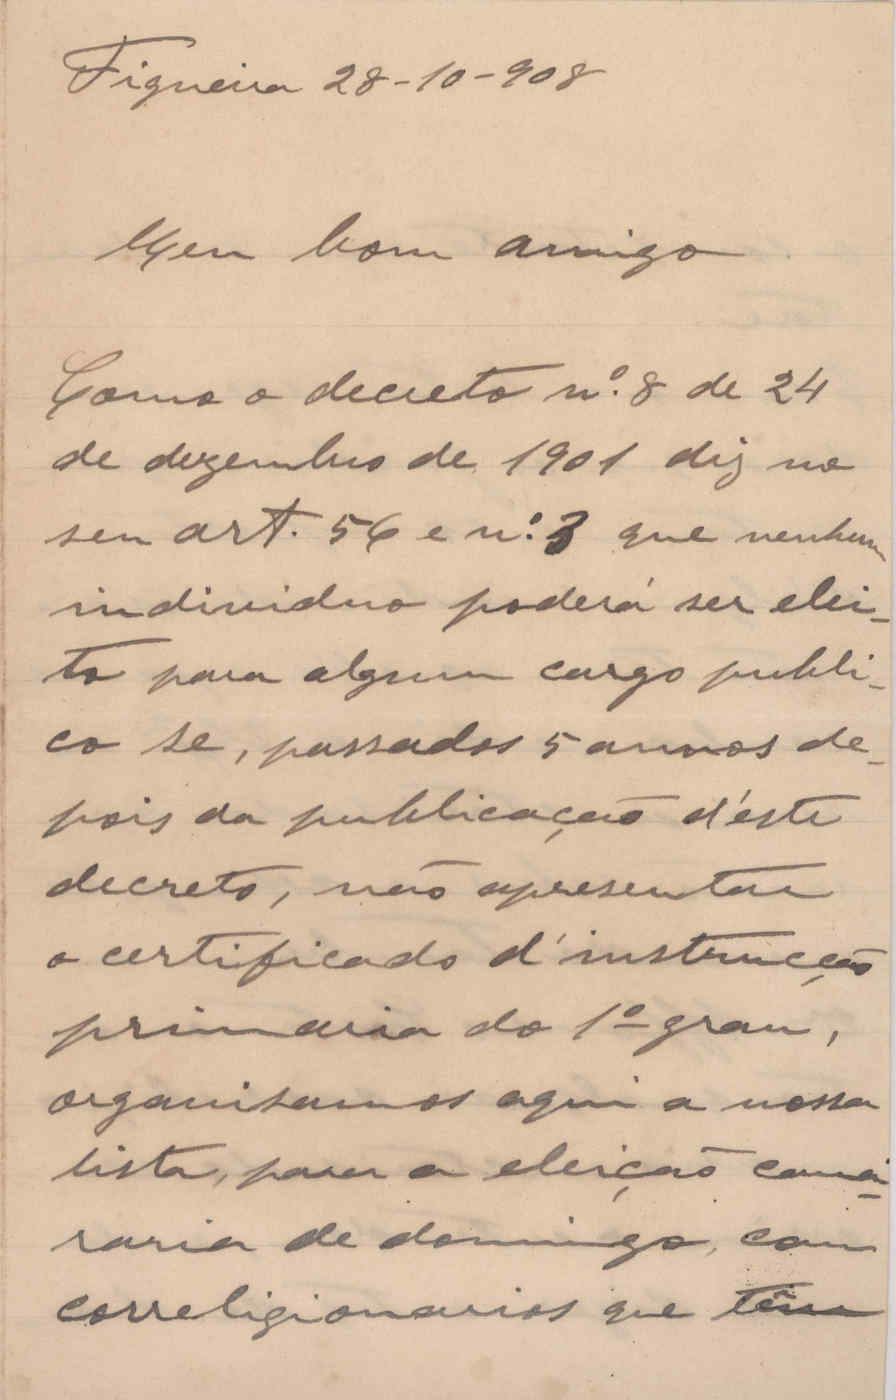 Figueira 28-10-908
Meu bom amigo
Como o decreto nº. 8 de 24
de dezembro de 1901 diz no
seu art. 56 e nº. 3 que nenhum
individuo poderá ser elei-
to para algum cargo publi-
co se, passados 5 annos de-
pois da publicação d'este
decreto, não apresentar
o certificado d'instrucção
primaria do 1º grau,
organisamos aqui a nossa
lista, para a eleição cama-
raria de domingo, com
correligionarios que têm